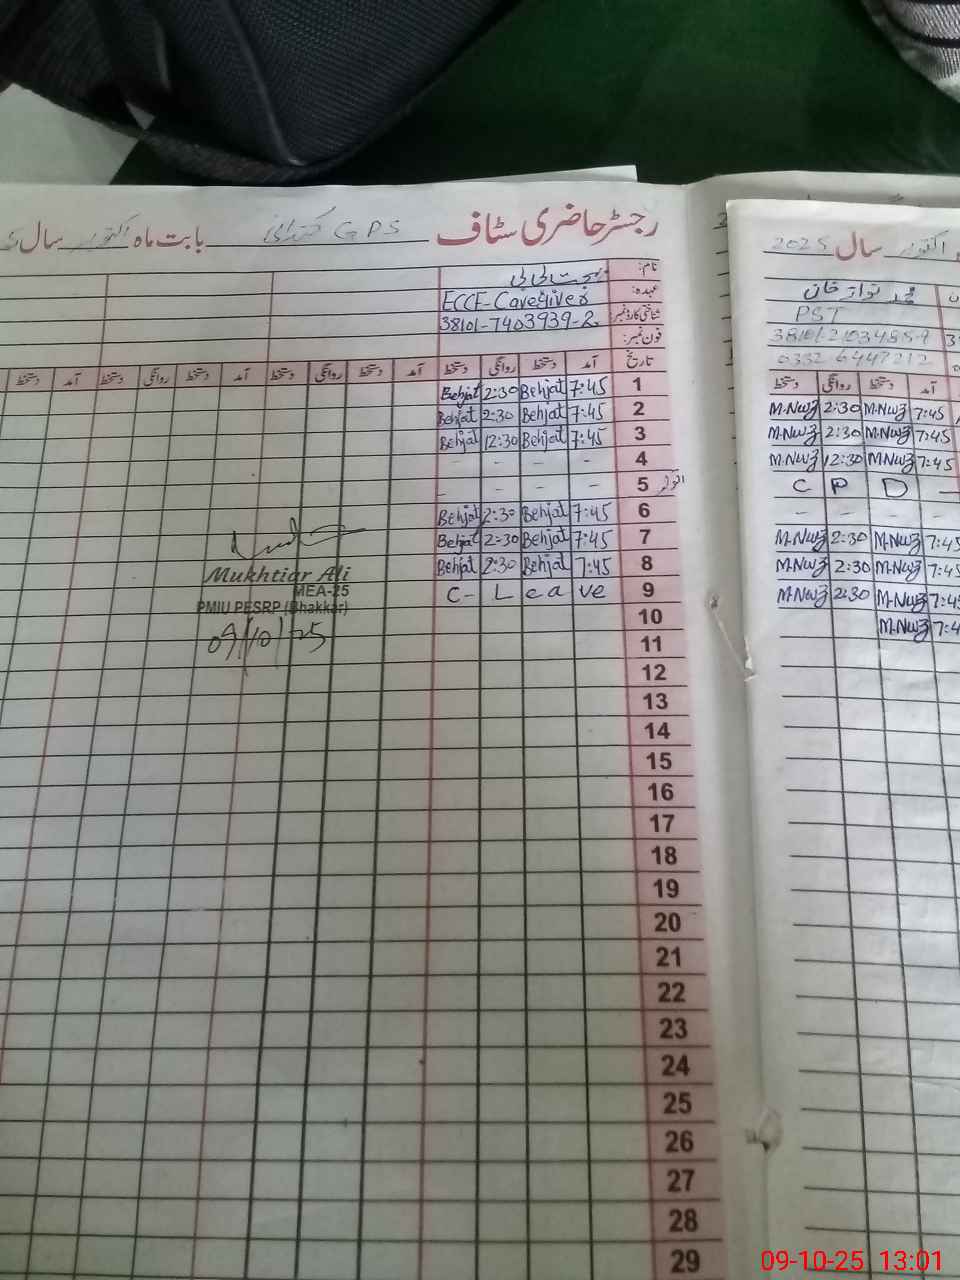 رجسٹر حاضری سٹاف GPS بابت ماہ اکتوبر سال
نام:
عہدہ: ECCE-Caregiver
شناختی کارڈ نمبر: 38101-7403939-2
فون نمبر:
تاریخ آمد دستخط روانگی دستخط آمد دستخط روانگی دستخط آمد دستخط روانگی دستخط آمد دستخط
1 7:45 Behjat 2:30 Behjat
2 7:45 Behjat 2:30 Behjat
3 7:45 Behjat 12:30 Behjat
4 - - - -
5 - - - -
اتوار
6 7:45 Behjat 2:30 Behjat
7 7:45 Behjat 2:30 Behjat
8 7:45 Behjat 2:30 Behjat
9 C- Leave
10
11
12
13
14
15
16
17
18
19
20
21
22
23
24
25
26
27
28
29
Mukhtiar Ali
MEA-25
PMIU PESRP (Bhakkar)
09/10/25
اکتوبر سال 2025
محمد نواز خان
PST
0332-6447212
آمد دستخط روانگی دستخط
7:45 M.Nwz 2:30 M.Nwz
7:45 M.Nwz 2:30 M.Nwz
7:45 M.Nwz 12:30 M.Nwz
C P D
- - -
7:45 M.Nwz 2:30 M.Nwz
7:45 M.Nwz 2:30 M.Nwz
7:45 M.Nwz 2:30 M.Nwz
M.Nwz
09-10-25 13:01